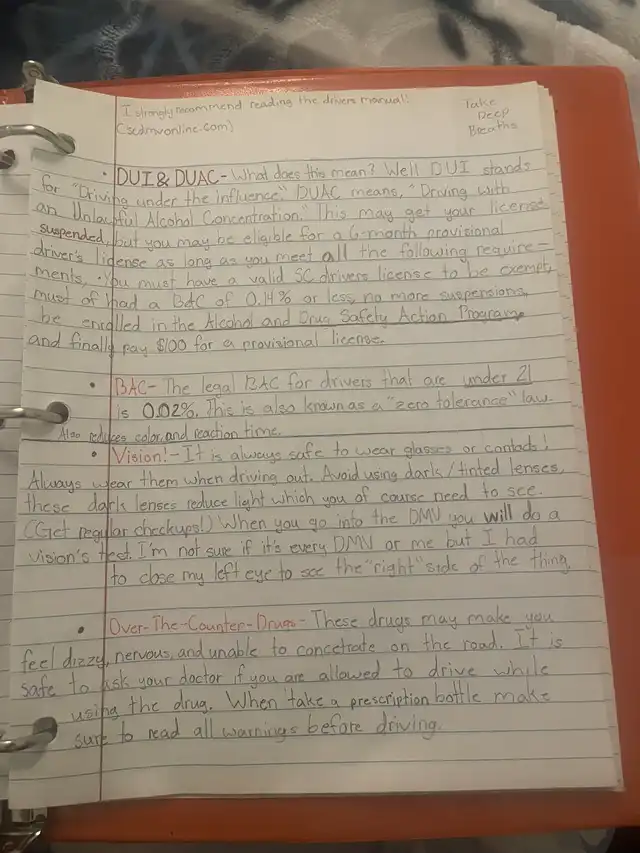 I strongly recommend reading the drivers manual!
(scdmvonline.com)
Take
Deep
Breaths
• DUI & DUAC- What does this mean? Well DUI stands
for "Driving under the influence." DUAC means, "Driving with
an Unlawful Alcohol Concentration." This may get your license
suspended, but you may be eligible for a 6-month provisional
driver's license as long as you meet all the following require-
ments, • You must have a valid SC drivers license to be exempt,
must of had a BAC of 0.14% or less, no more suspensions,
be enrolled in the Alcohol and Drug Safety Action Program,
and finally pay $100 for a provisional license.
• BAC- The legal BAC for drivers that are under 21
is 0.02%. This is also known as a "zero tolerance" law.
Also reduces color, and reaction time.
• Vision!- It is always safe to wear glasses or contacts!
Always wear them when driving out. Avoid using darks/tinted lenses,
these dark lenses reduce light which you of course need to see.
(Get regular checkups!) When you go into the DMV you will do a
vision's test. I'm not sure if it's every DMV or me but I had
to close my left eye to see the "right" side of the thing.
• Over-The-Counter-Drugs- These drugs may make you
feel dizzy, nervous, and unable to concetrate on the road. It is
safe to ask your doctor if you are allowed to drive while
using the drug. When take a prescription bottle make
sure to read all warnings before driving.